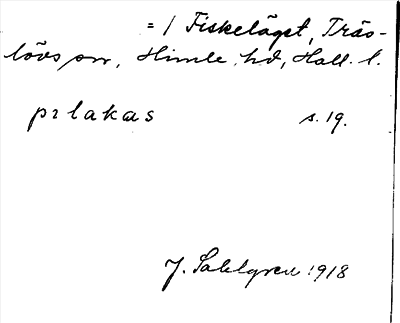 = / Fiskeläget, Träs-
lövs sn, Himle hd, Hall. l.
prlakas s. 19.
J. Sahlgren 1918